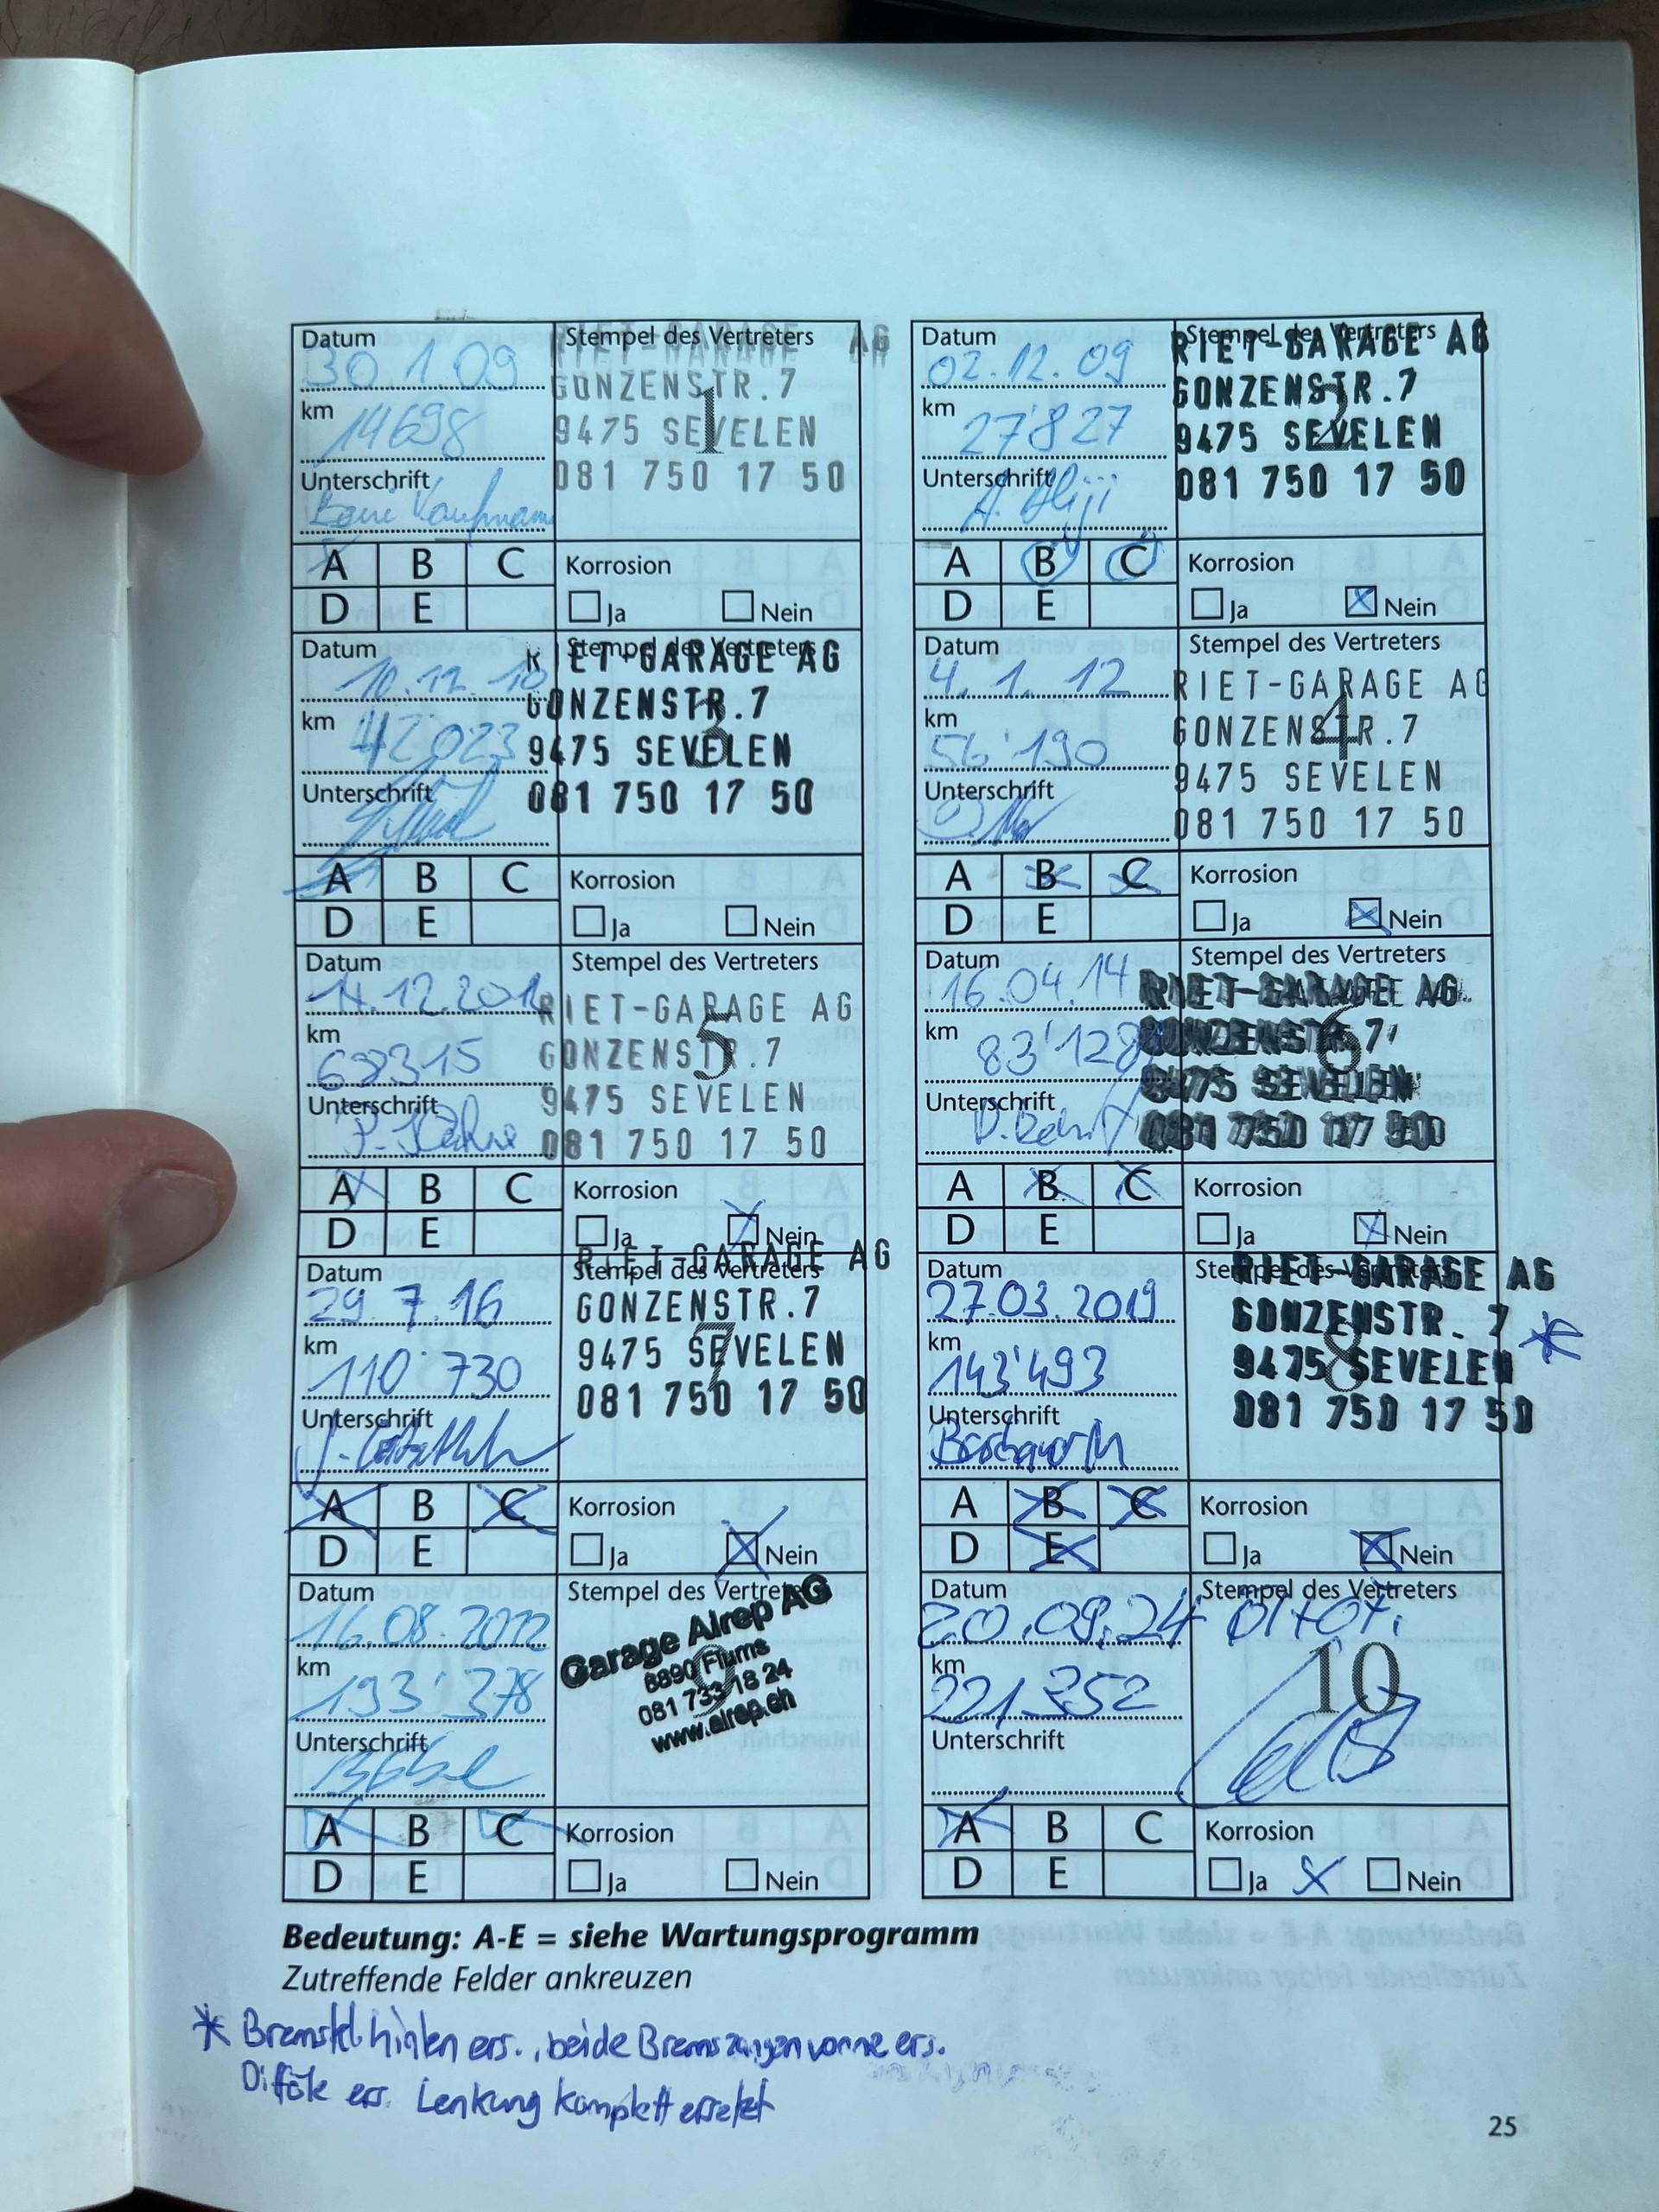 Datum
30.1.09
km
14698
Unterschrift
Stempel des Vertreters
RIET-GARAGE AG
GONZENSTR.7
9475 SEVELEN
081 750 17 50
1
A B C
D E
Korrosion
Ja Nein
Datum
02.12.09
km
27'827
Unterschrift
Stempel des Vertreters
RIET-GARAGE AG
GONZENSTR.7
9475 SEVELEN
081 750 17 50
2
A B C
D E
Korrosion
Ja Nein
Datum
10.12.10
km
42023
Unterschrift
Stempel des Vertreters
RIET-GARAGE AG
GONZENSTR.7
9475 SEVELEN
081 750 17 50
3
A B C
D E
Korrosion
Ja Nein
Datum
4.1.12
km
56'190
Unterschrift
Stempel des Vertreters
RIET-GARAGE AG
GONZENSTR.7
9475 SEVELEN
081 750 17 50
4
A B C
D E
Korrosion
Ja Nein
Datum
km
Unterschrift
Stempel des Vertreters
RIET-GARAGE AG
GONZENSTR.7
9475 SEVELEN
081 750 17 50
5
A B C
D E
Korrosion
Ja Nein
Datum
16.04.14
km
Unterschrift
Stempel des Vertreters
RIET-GARAGE AG
GONZENSTR.7
9475 SEVELEN
081 750 17 50
6
A B C
D E
Korrosion
Ja Nein
Datum
29.7.16
km
110'730
Unterschrift
Stempel des Vertreters
RIET-GARAGE AG
GONZENSTR.7
9475 SEVELEN
081 750 17 50
7
A B C
D E
Korrosion
Ja Nein
Datum
27.03.2019
km
143'493
Unterschrift
Stempel des Vertreters
RIET-GARAGE AG
GONZENSTR. 7 *
9475 SEVELEN
081 750 17 50
8
A B C
D E
Korrosion
Ja Nein
Datum
16.08.2022
km
193'378
Unterschrift
Stempel des Vertreters
Garage Alrep AG
8890 Flums
081 733 18 24
www.alrep.ch
9
A B C
D E
Korrosion
Ja Nein
Datum
20.09.24
km
221352
Unterschrift
Stempel des Vertreters
10
A B C
D E
Korrosion
Ja Nein
Bedeutung: A-E = siehe Wartungsprogramm
Zutreffende Felder ankreuzen
* hinten ers., beide Bremszangen vorne ers.
ers. Lenkung komplett ersetzt
25